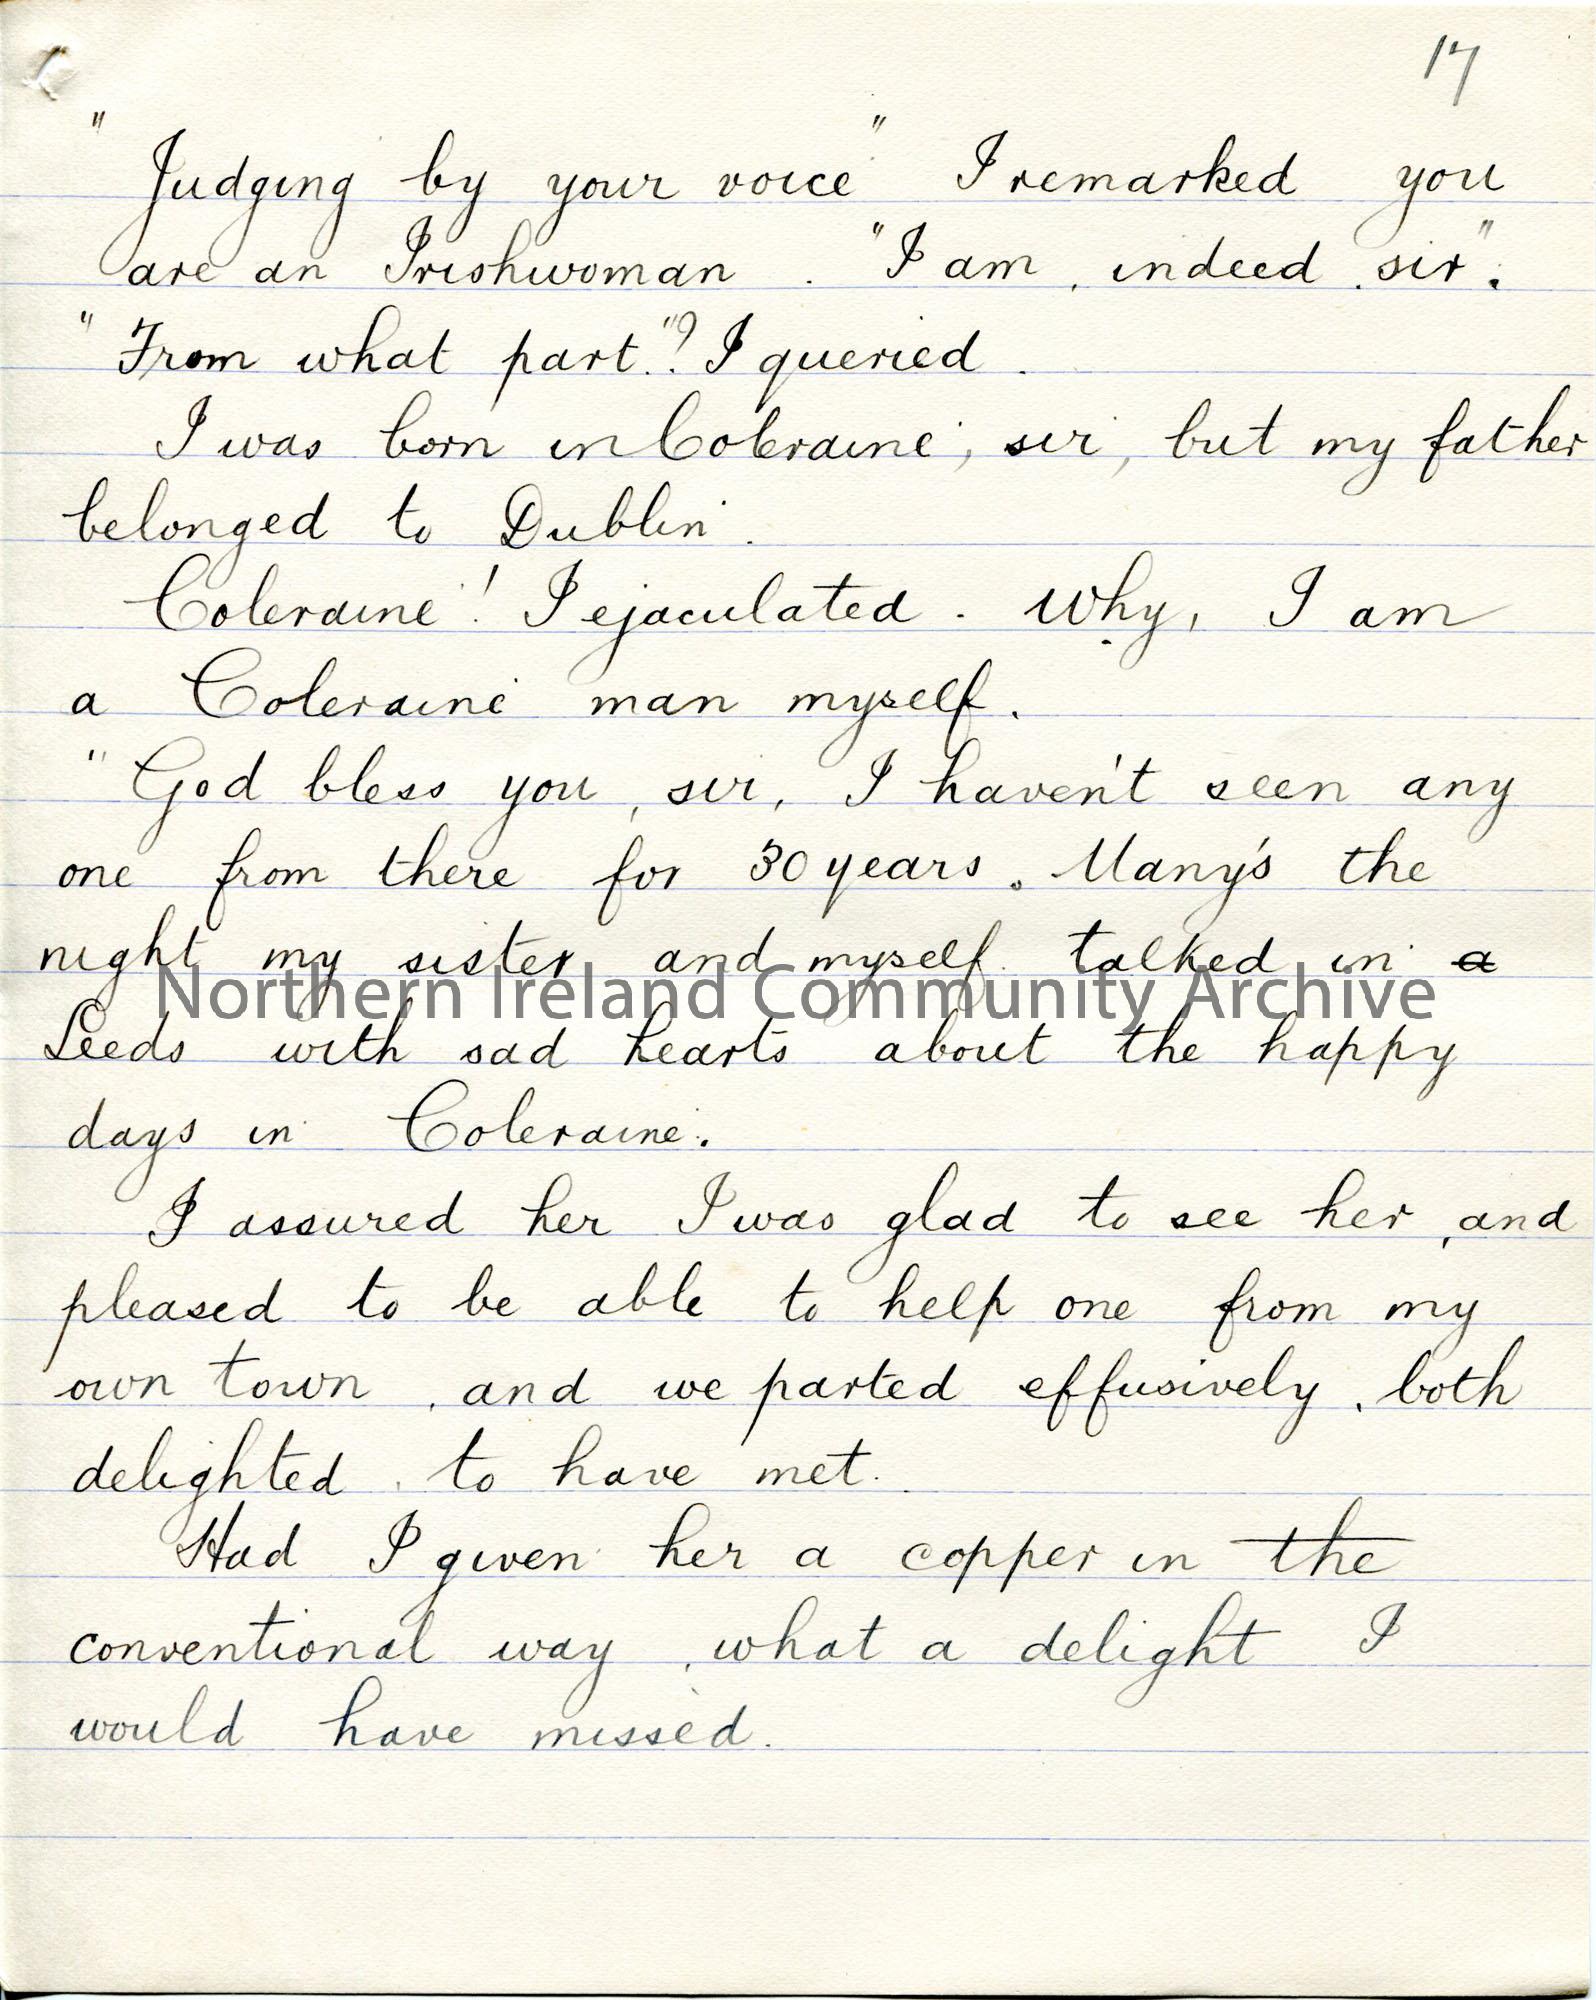 17
"Judging by your voice" I remarked you
are an Irishwoman. "I am, indeed, sir".
"From what part"? I queried.
I was born in Coleraine, sir, but my father
belonged to Dublin.
Coleraine! I ejaculated. Why, I am
a Coleraine man myself.
"God bless you, sir, I haven't seen any
one from there for 30 years. Many's the
night my sister and myself talked in a
Northern Ireland Community Archive
Leeds with sad hearts about the happy
days in Coleraine.
I assured her I was glad to see her, and
pleased to be able to help one from my
own town, and we parted effusively, both
delighted to have met.
Had I given her a copper in the
conventional way, what a delight I
would have missed.